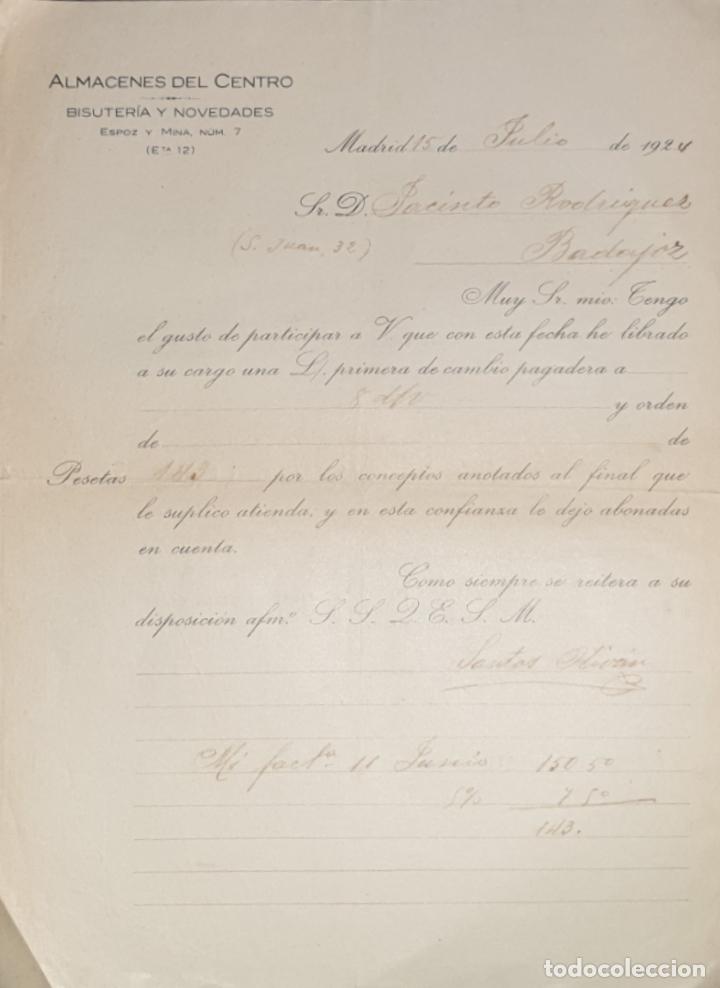 ALMACENES DEL CENTRO
BISUTERÍA Y NOVEDADES
ESPOZ Y MINA, NÚM. 7
(Eᵀᴬ 12)
Madrid 15 de Julio de 1924
Sr. D. Jacinto Rodriguez
(S. Juan, 32) Badajoz
Muy Sr. mio: Tengo
el gusto de participar a V. que con esta fecha he librado
a su cargo una L/. primera de cambio pagadera a
8 d/v y orden
de de
Pesetas 143 por los conceptos anotados al final que
le suplico atienda, y en esta confianza le dejo abonadas
en cuenta.
Como siempre se reitera a su
disposición afm.º S. S. Q. E. S. M.
Santos
Mi factª 11 Junio 150 50
5% 7 50
143.
todocoleccion
todocoleccion.net